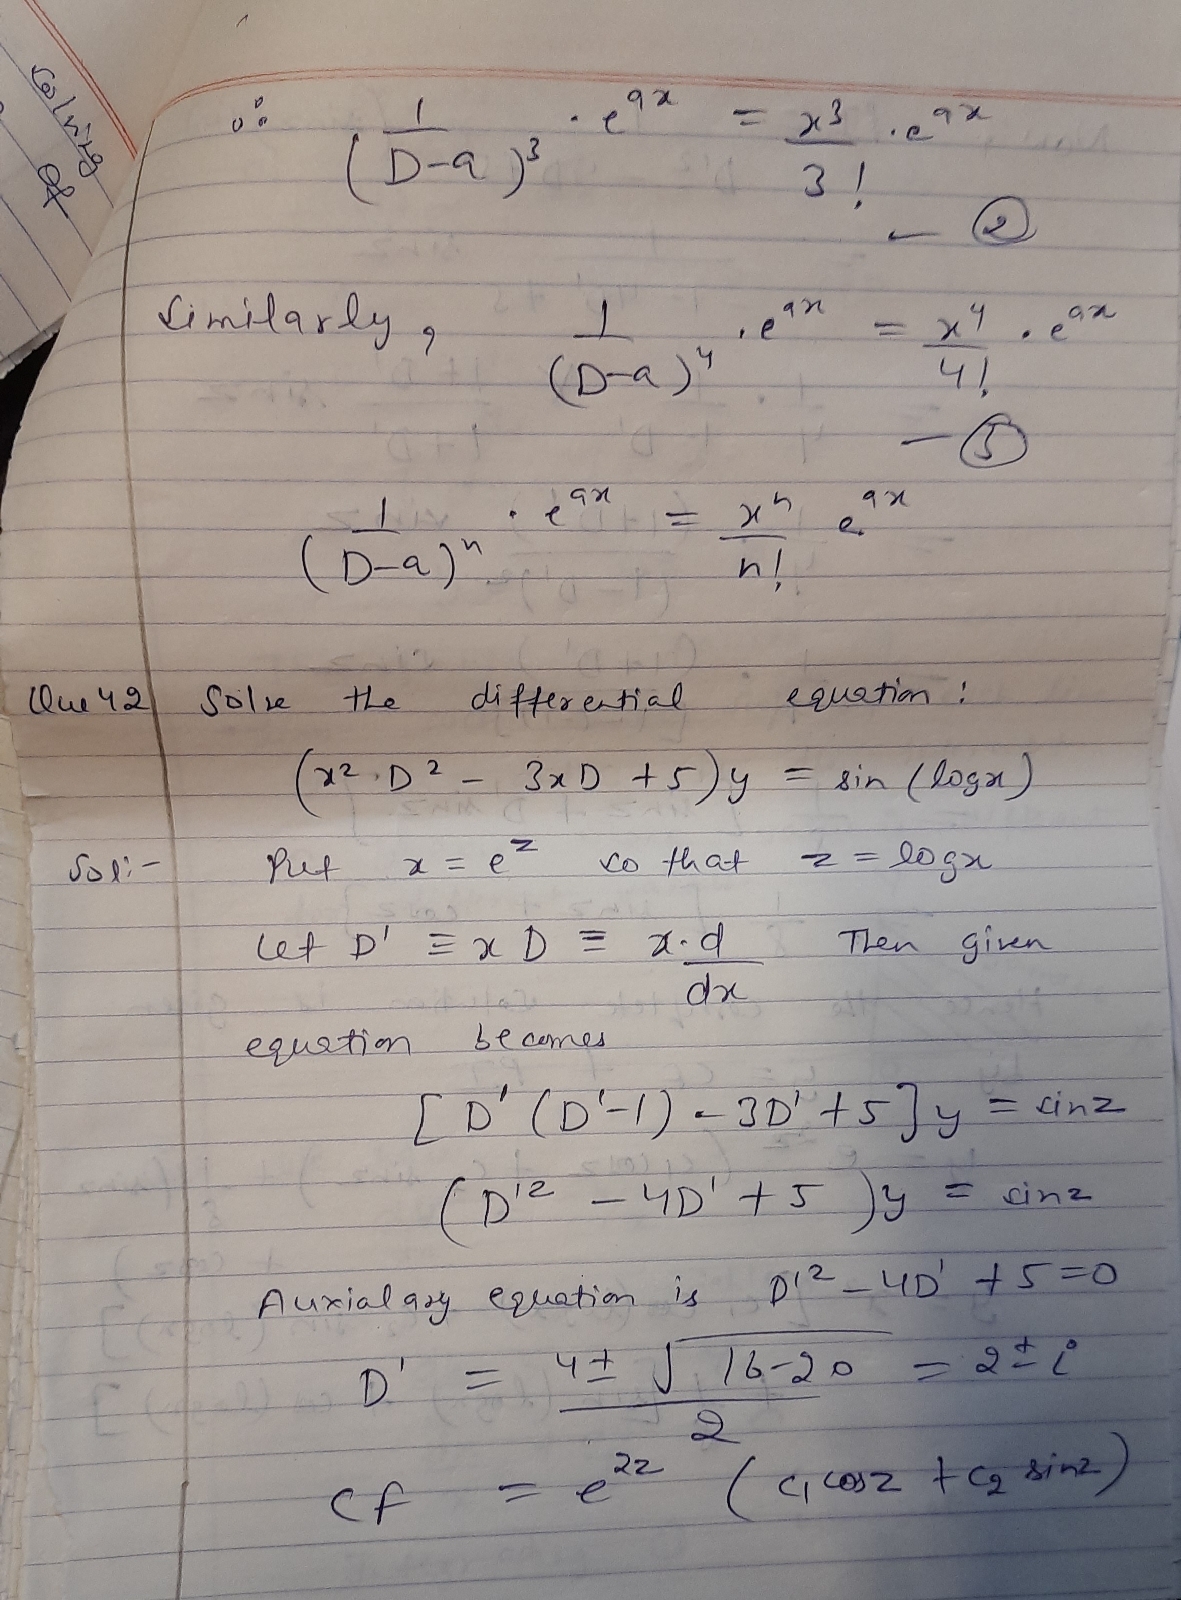 solving
of
∴ 1/(D-a)³ · e^ax = x³/3! · e^ax
— ②
Similarly, 1/(D-a)⁴ · e^ax = x⁴/4! · e^ax
— ③
1/(D-a)ⁿ · e^ax = xⁿ/n! e^ax
Que 42 Solve the differential equation :
(x² · D² - 3xD + 5)y = sin (logx)
Sol:- Put x = e^z so that z = logx
Let D' ≡ xD ≡ x·d/dx Then given
equation becomes
[D' (D'-1) - 3D' + 5]y = sinz
(D'² - 4D' + 5)y = sinz
Auxialary equation is D'² - 4D' + 5 = 0
D' = 4 ± √16-20 / 2 = 2 ± i
CF = e^2z (c₁ cosz + c₂ sinz)